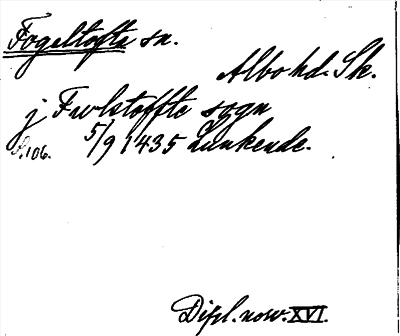 Fogeltofta sn.
Albo hd. Sk.
j Fwlstoffte sogn
s. 106. 5/9 1435 Lunkende.
Dipl. now. XVI.